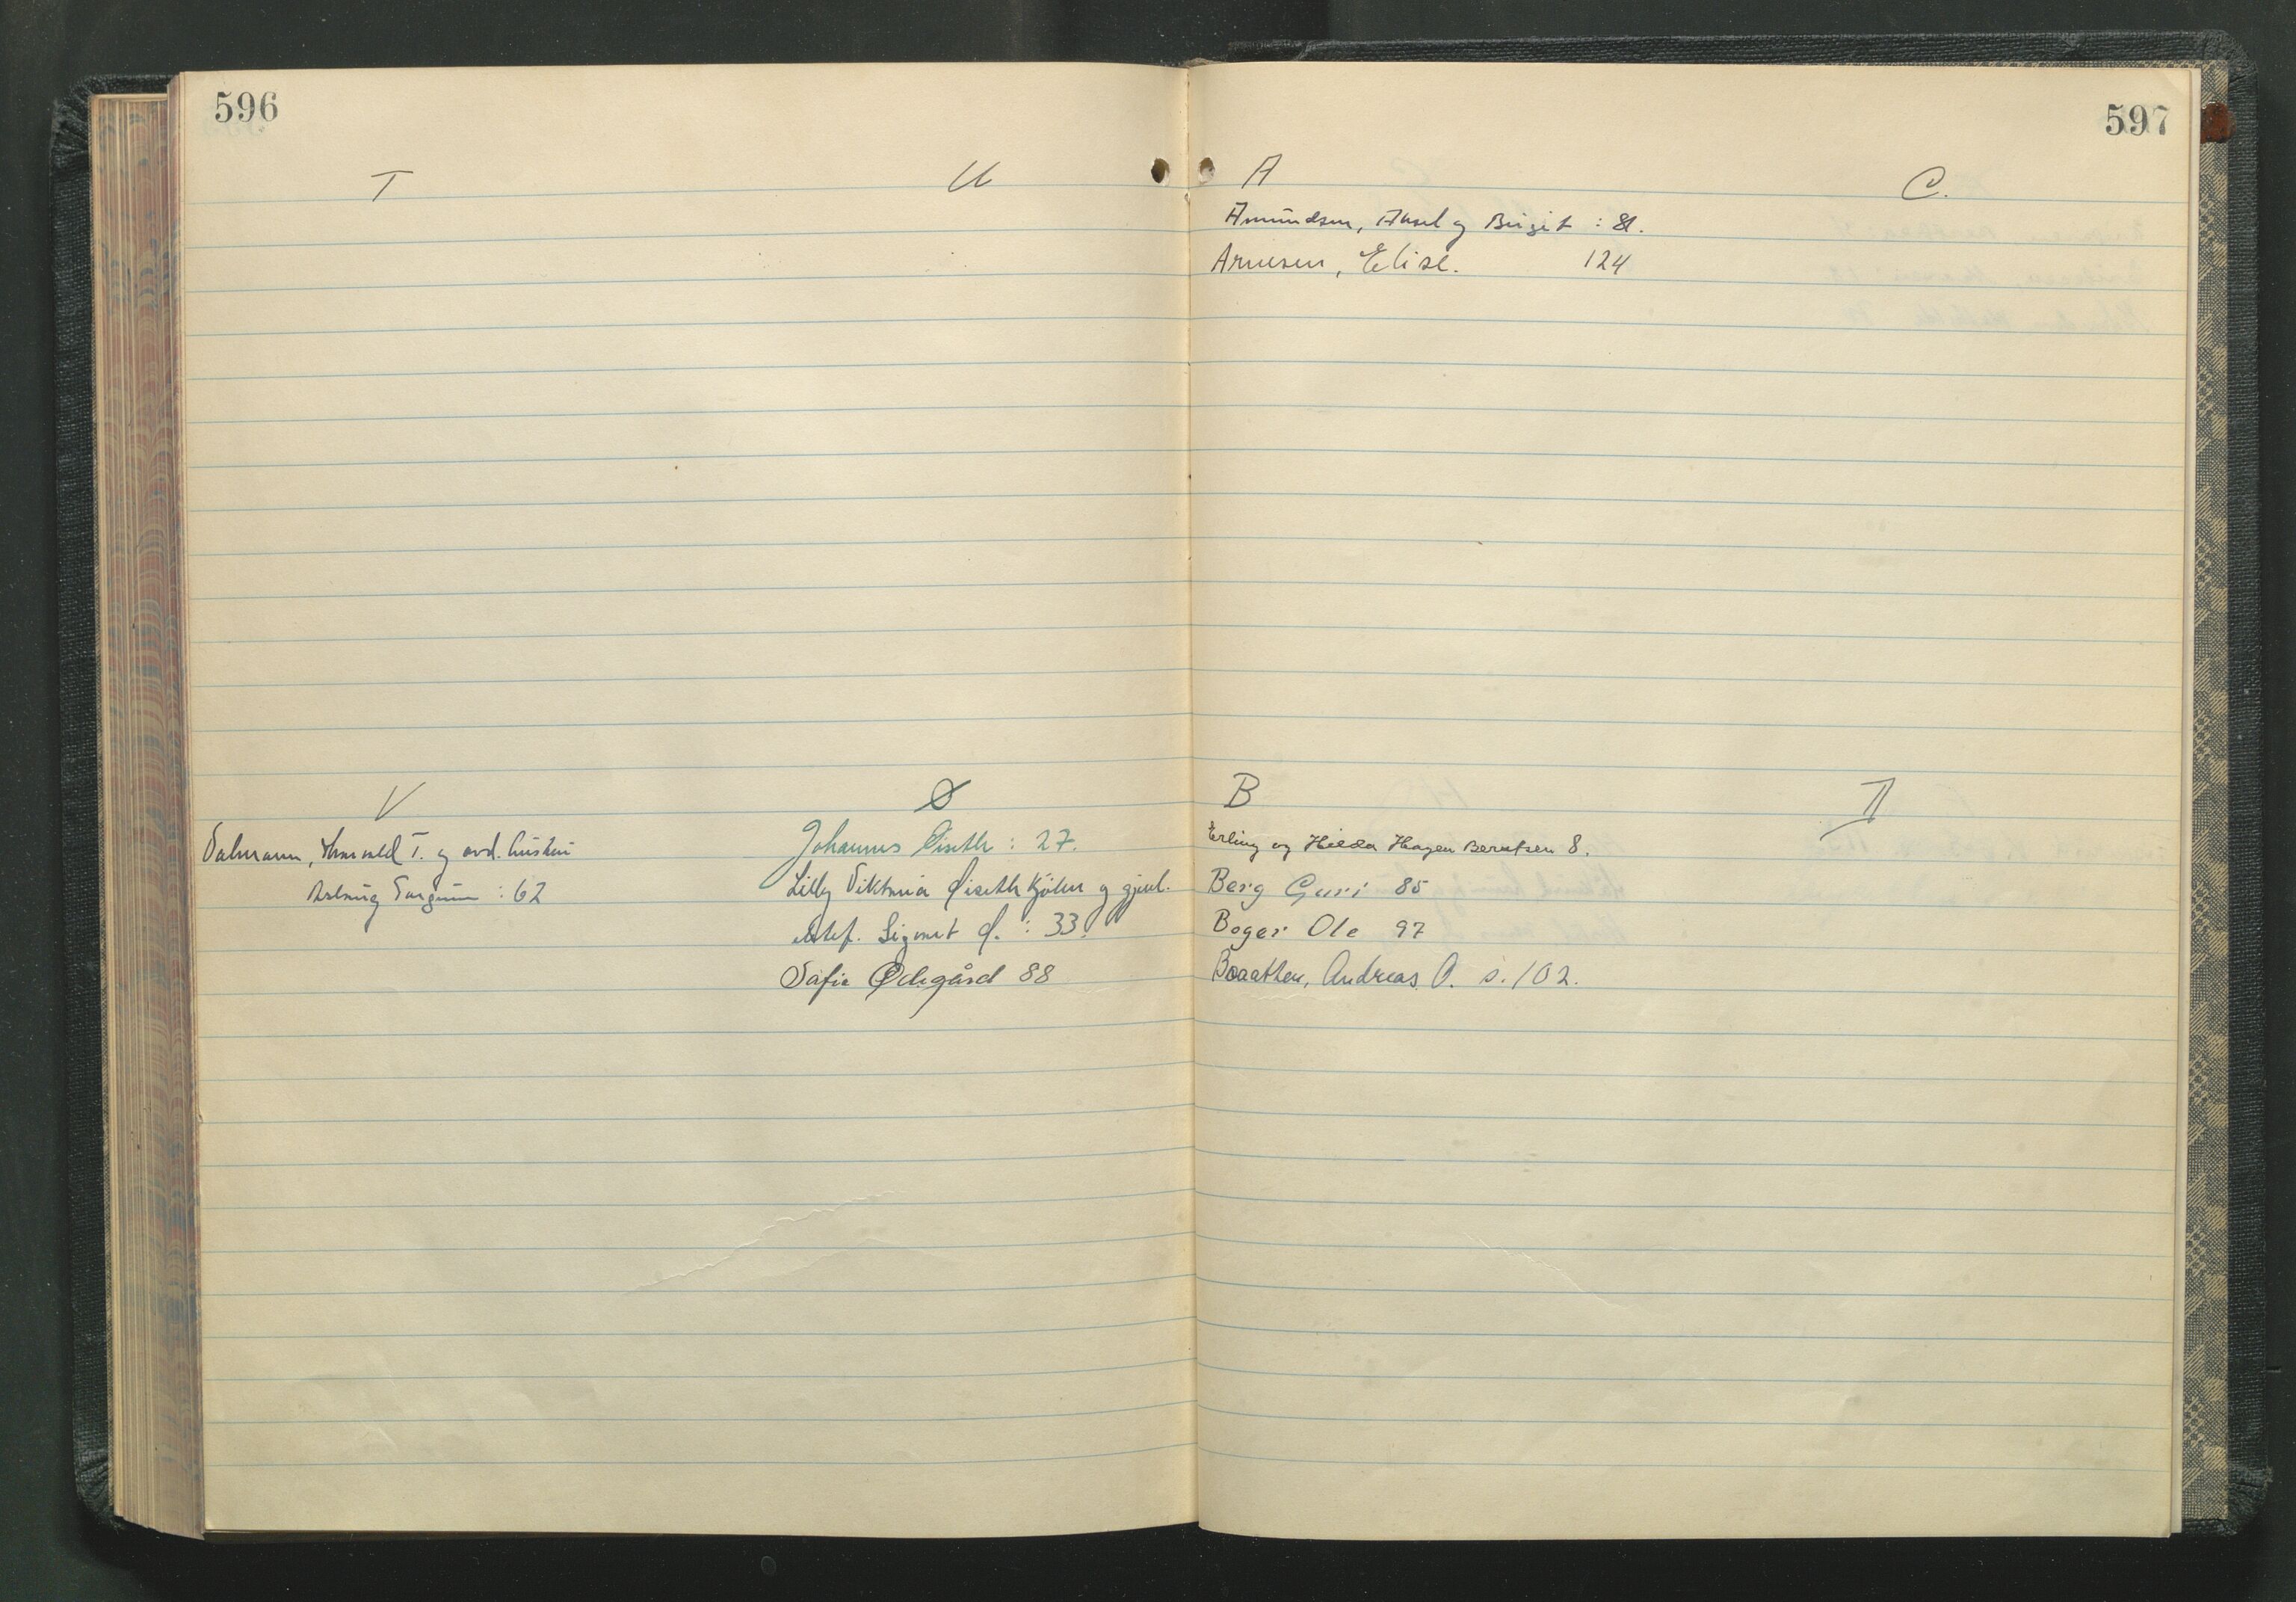 596
T
U
V
Ø
Valmann, Thorvald T. og avd. hustru
Aslaug Jorgine : 62
Johannes Øiseth : 27.
Lilly Viktoria Øiseth Kjølen og gjenl.
ektef. Sigmet Ø. : 33.
Safie Ødegård 88
597
A
C.
Amundsen, Aksel og Birgit : 81.
Arnesen, Elise. 124
B
Erling og Hilda Hagen Berntsen 8.
Berg Guri 85
Boger Ole 97
Braathen, Andreas O. s. 102.